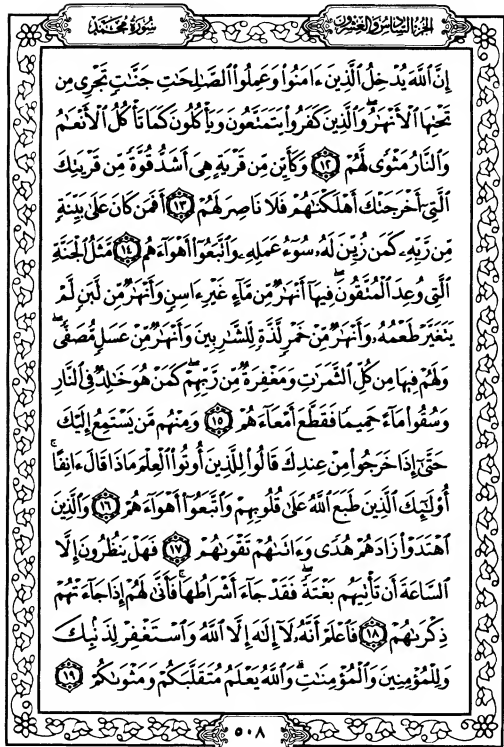 الجزء السادس والعشرون
سورة محمد
إِنَّ اللَّهَ يُدْخِلُ الَّذِينَ ءَامَنُوا وَعَمِلُوا الصَّالِحَاتِ جَنَّاتٍ تَجْرِي مِن
تَحْتِهَا الْأَنْهَارُ وَالَّذِينَ كَفَرُوا يَتَمَتَّعُونَ وَيَأْكُلُونَ كَمَا تَأْكُلُ الْأَنْعَامُ
وَالنَّارُ مَثْوًى لَّهُمْ ١٢ وَكَأَيِّن مِّن قَرْيَةٍ هِيَ أَشَدُّ قُوَّةً مِّن قَرْيَتِكَ
الَّتِي أَخْرَجَتْكَ أَهْلَكْنَاهُمْ فَلَا نَاصِرَ لَهُمْ ١٣ أَفَمَن كَانَ عَلَىٰ بَيِّنَةٍ
مِّن رَّبِّهِ كَمَن زُيِّنَ لَهُ سُوءُ عَمَلِهِ وَاتَّبَعُوا أَهْوَاءَهُم ١٤ مَّثَلُ الْجَنَّةِ
الَّتِي وُعِدَ الْمُتَّقُونَ فِيهَا أَنْهَارٌ مِّن مَّاءٍ غَيْرِ ءَاسِنٍ وَأَنْهَارٌ مِّن لَّبَنٍ لَّمْ
يَتَغَيَّرْ طَعْمُهُ وَأَنْهَارٌ مِّنْ خَمْرٍ لَّذَّةٍ لِّلشَّارِبِينَ وَأَنْهَارٌ مِّنْ عَسَلٍ مُّصَفًّى
وَلَهُمْ فِيهَا مِن كُلِّ الثَّمَرَاتِ وَمَغْفِرَةٌ مِّن رَّبِّهِمْ كَمَنْ هُوَ خَالِدٌ فِي النَّارِ
وَسُقُوا مَاءً حَمِيمًا فَقَطَّعَ أَمْعَاءَهُمْ ١٥ وَمِنْهُم مَّن يَسْتَمِعُ إِلَيْكَ
حَتَّىٰ إِذَا خَرَجُوا مِنْ عِندِكَ قَالُوا لِلَّذِينَ أُوتُوا الْعِلْمَ مَاذَا قَالَ ءَانِفًا
أُولَٰئِكَ الَّذِينَ طَبَعَ اللَّهُ عَلَىٰ قُلُوبِهِمْ وَاتَّبَعُوا أَهْوَاءَهُمْ ١٦ وَالَّذِينَ
اهْتَدَوْا زَادَهُمْ هُدًى وَءَاتَاهُمْ تَقْوَاهُمْ ١٧ فَهَلْ يَنظُرُونَ إِلَّا
السَّاعَةَ أَن تَأْتِيَهُم بَغْتَةً فَقَدْ جَاءَ أَشْرَاطُهَا فَأَنَّىٰ لَهُمْ إِذَا جَاءَتْهُمْ
ذِكْرَاهُمْ ١٨ فَاعْلَمْ أَنَّهُ لَا إِلَٰهَ إِلَّا اللَّهُ وَاسْتَغْفِرْ لِذَنبِكَ
وَلِلْمُؤْمِنِينَ وَالْمُؤْمِنَاتِ وَاللَّهُ يَعْلَمُ مُتَقَلَّبَكُمْ وَمَثْوَاكُمْ ١٩
٥٠٨